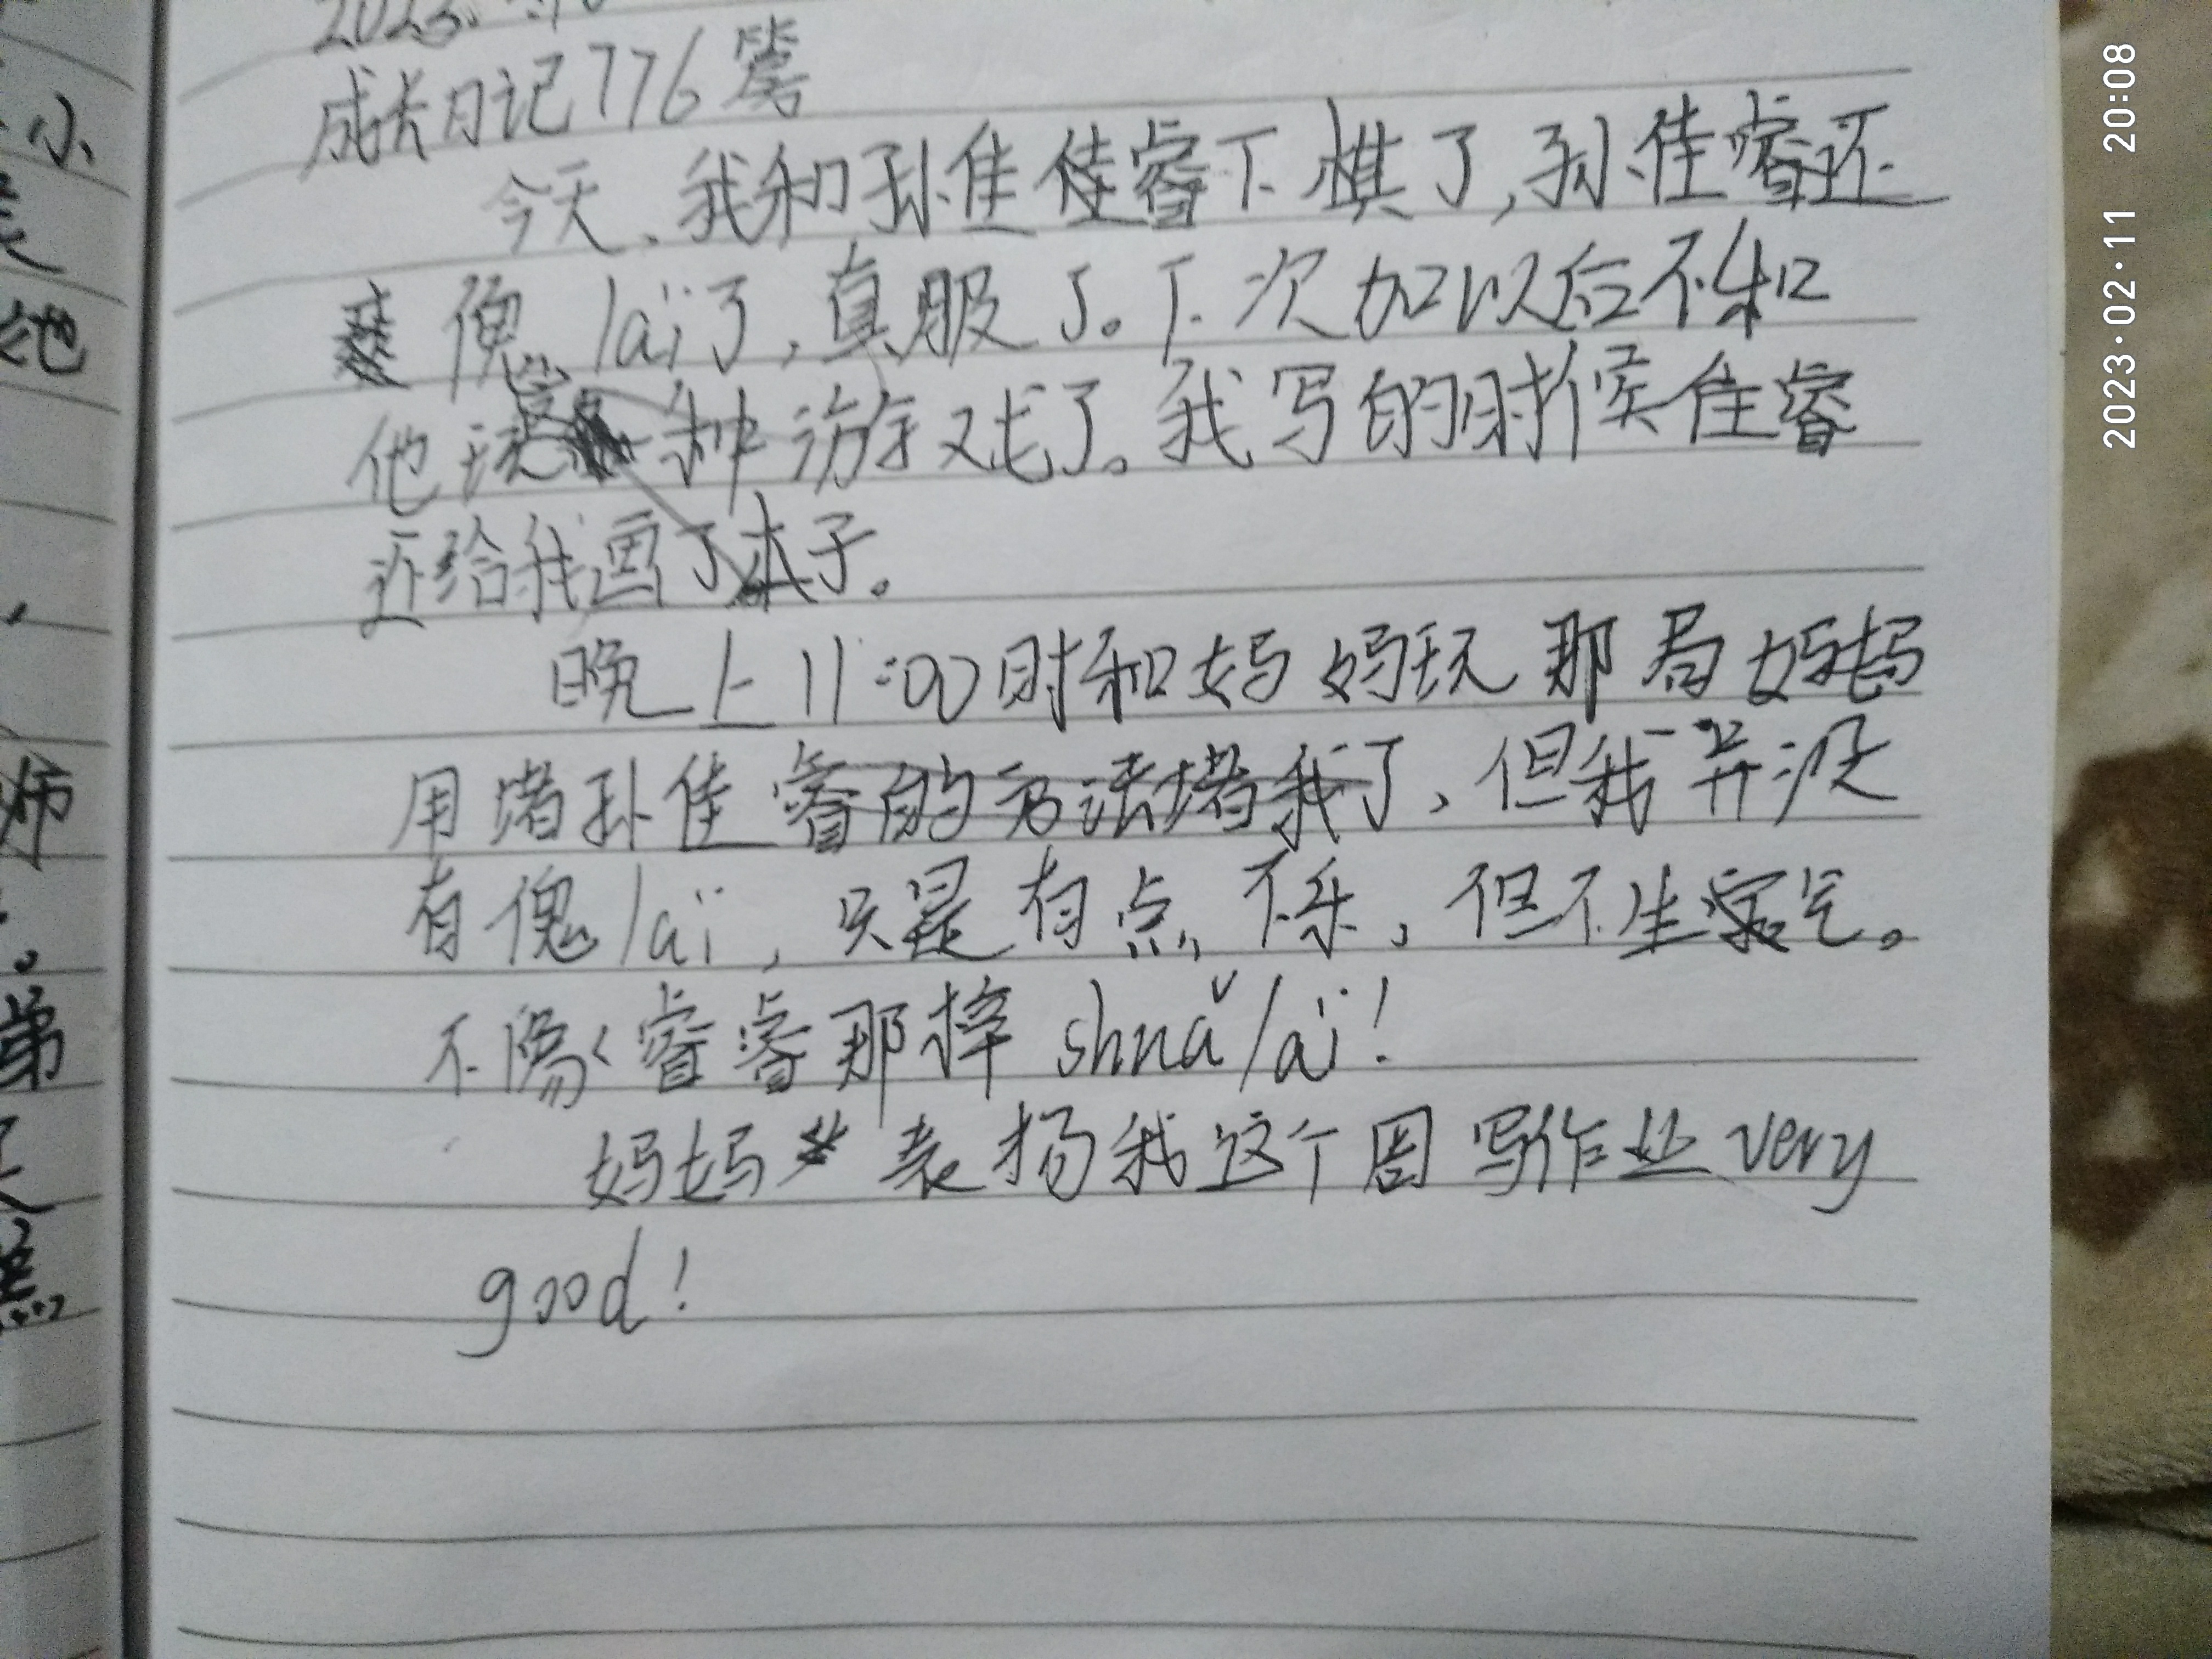 2023.
成长日记776篇
今天,我和孙佳佳睿下棋了,孙佳睿还
傻lai了,真服了。下次加以后不和
他玩种游戏了。我写的时候佳睿
还给我画了本子。
晚上11:00时和妈妈玩那局妈妈
用堵孙佳睿的方法堵我了,但我并没
有傻lai,只是有点不乐,但不生气。
不像睿睿那样shuǎ lai!
妈妈表扬我这个周写作业very
good!
小
她
师
弟
2023·02·11 20:08